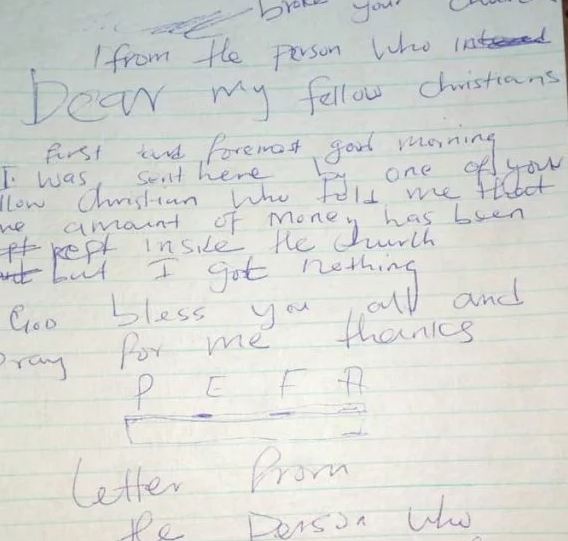 broke your
from the person who
Dear my fellow christians
first and foremost good morning
I was sent here by one of you
llow Christian who told me that
me amount of money has been
kept inside the church
but I got nothing
GOD bless you all and
pray for me thanks
P E F A
Letter from
the person who